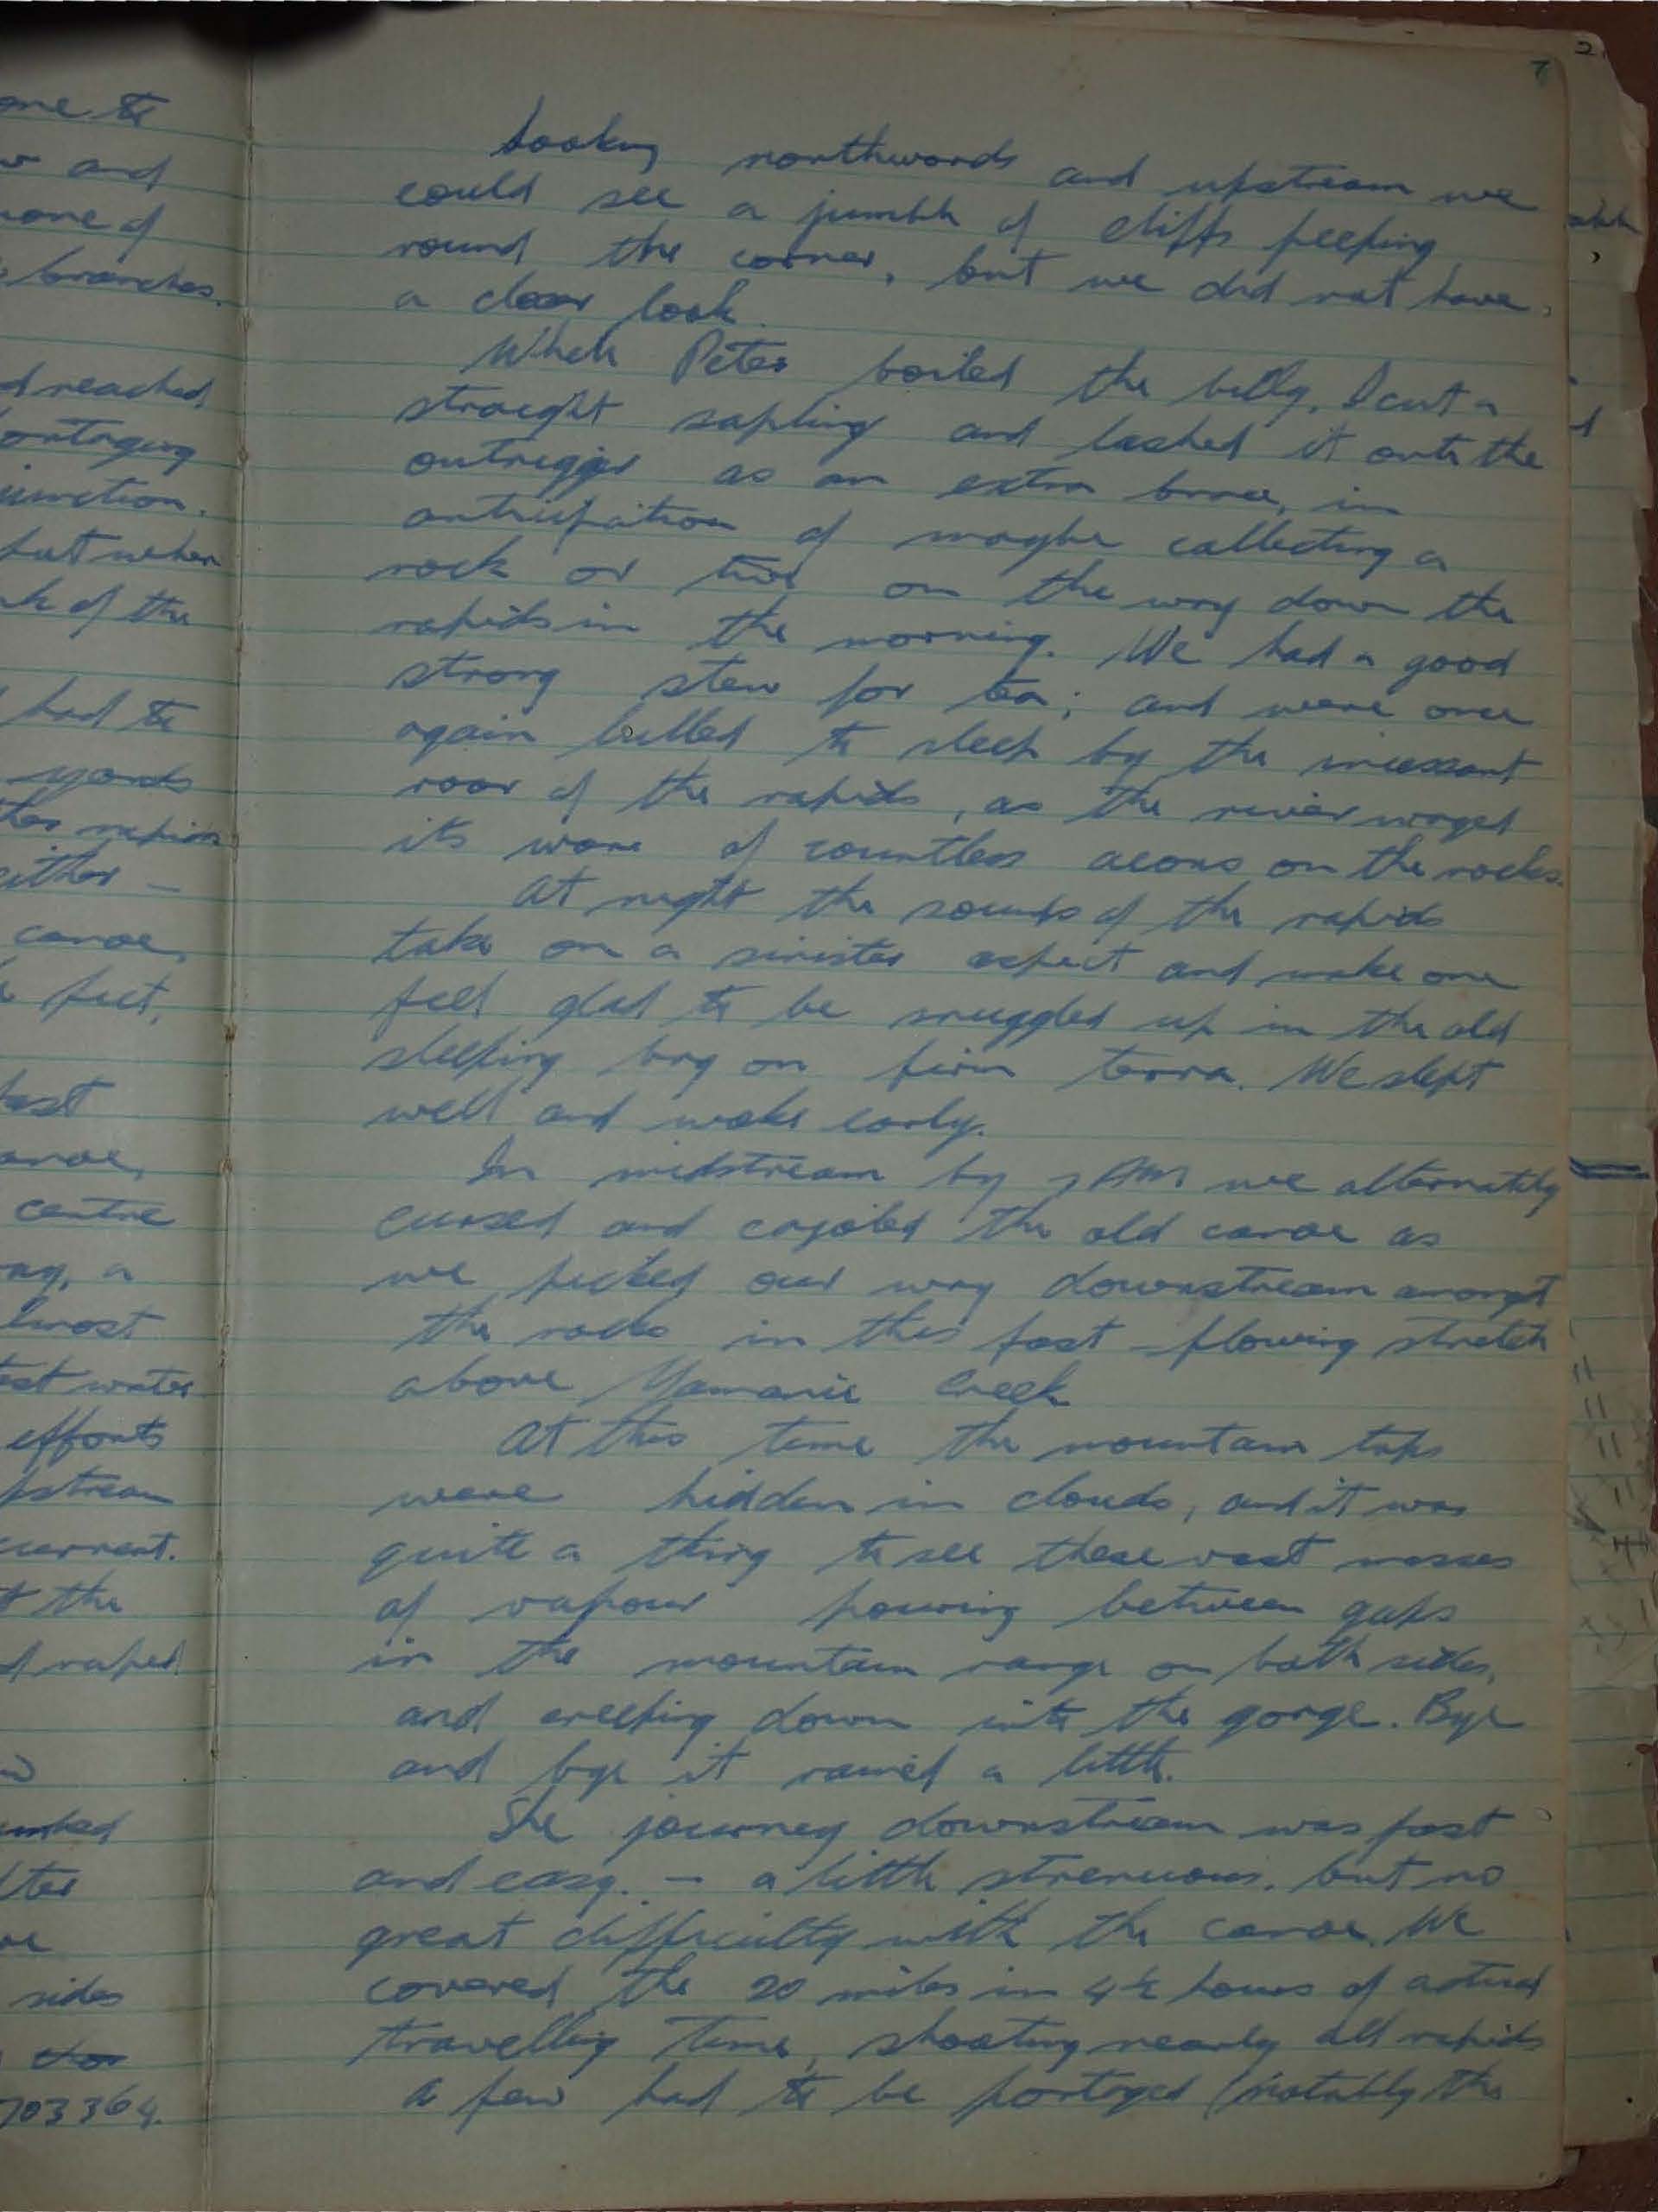 one to
and
none of
branches.
reached
portaging
junction.
but when
of the
had to
yards
rapids
either —
canoe,
feet,
canoe,
centre
almost
water
efforts
upstream
current.
the
sides
703364.
2
7
Looking northwards and upstream we
could see a jumble of cliffs peeping
round the corner, but we did not have
a clear look.
When Peter boiled the billy, I cut a
straight sapling and lashed it onto the
outrigger as an extra brace, in
anticipation of maybe collecting a
rock or two on the way down the
rapids in the morning. We had a good
strong stew for tea; and were once
again lulled to sleep by the incessant
roar of the rapids, as the river waged
its ware of countless aeons on the rocks.
At night the sounds of the rapids
take on a sinister aspect and make one
feel glad to be snuggled up in the old
sleeping bag on firm terra. We slept
well and woke early.
In midstream by 7 AM we alternately
cursed and cajoled the old canoe as
we picked our way downstream amongst
the rocks in this fast-flowing stretch
above Yamanie Creek
At this time the mountain tops
were hidden in clouds, and it was
quite a thing to see these vast masses
of vapour pouring between gaps
in the mountain range on both sides,
and creeping down into the gorge. Bye
and bye it rained a little.
The journey downstream was fast
and easy. — a little strenuous, but no
great difficulty with the canoe. We
covered the 20 miles in 4½ hours of actual
travelling time, shooting nearly all rapids
a few had to be portaged (notably the